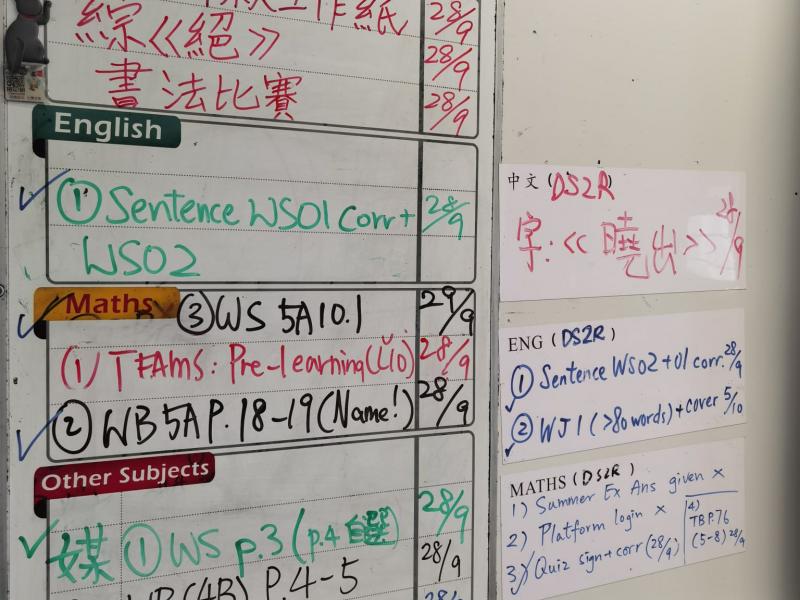 工作紙 28/9
綜《絕》 28/9
書法比賽 28/9
English
① Sentence WS01 corr + 28/9
WS02
Maths ③ WS 5A10.1 29/9
(1) TEAMS: Pre-learning (L10) 28/9
② WB 5A P.18-19 (Name!) 28/9
Other Subjects
媒 ① WS p.3 (p.4 自選) 28/9
WB (4B) P.4-5 28/9
中文 (DS2R)
字:<<曉出>> 28/9
ENG (DS2R)
① Sentence WS02 + 01 corr. 28/9
② WJ1 (>80 words) + cover 5/10
MATHS (DS2R)
1) Summer Ex Ans given ×
2) Platform login ×
3) Quiz sign + corr (28/9)
4)
TB P.76
(5-8) 28/9